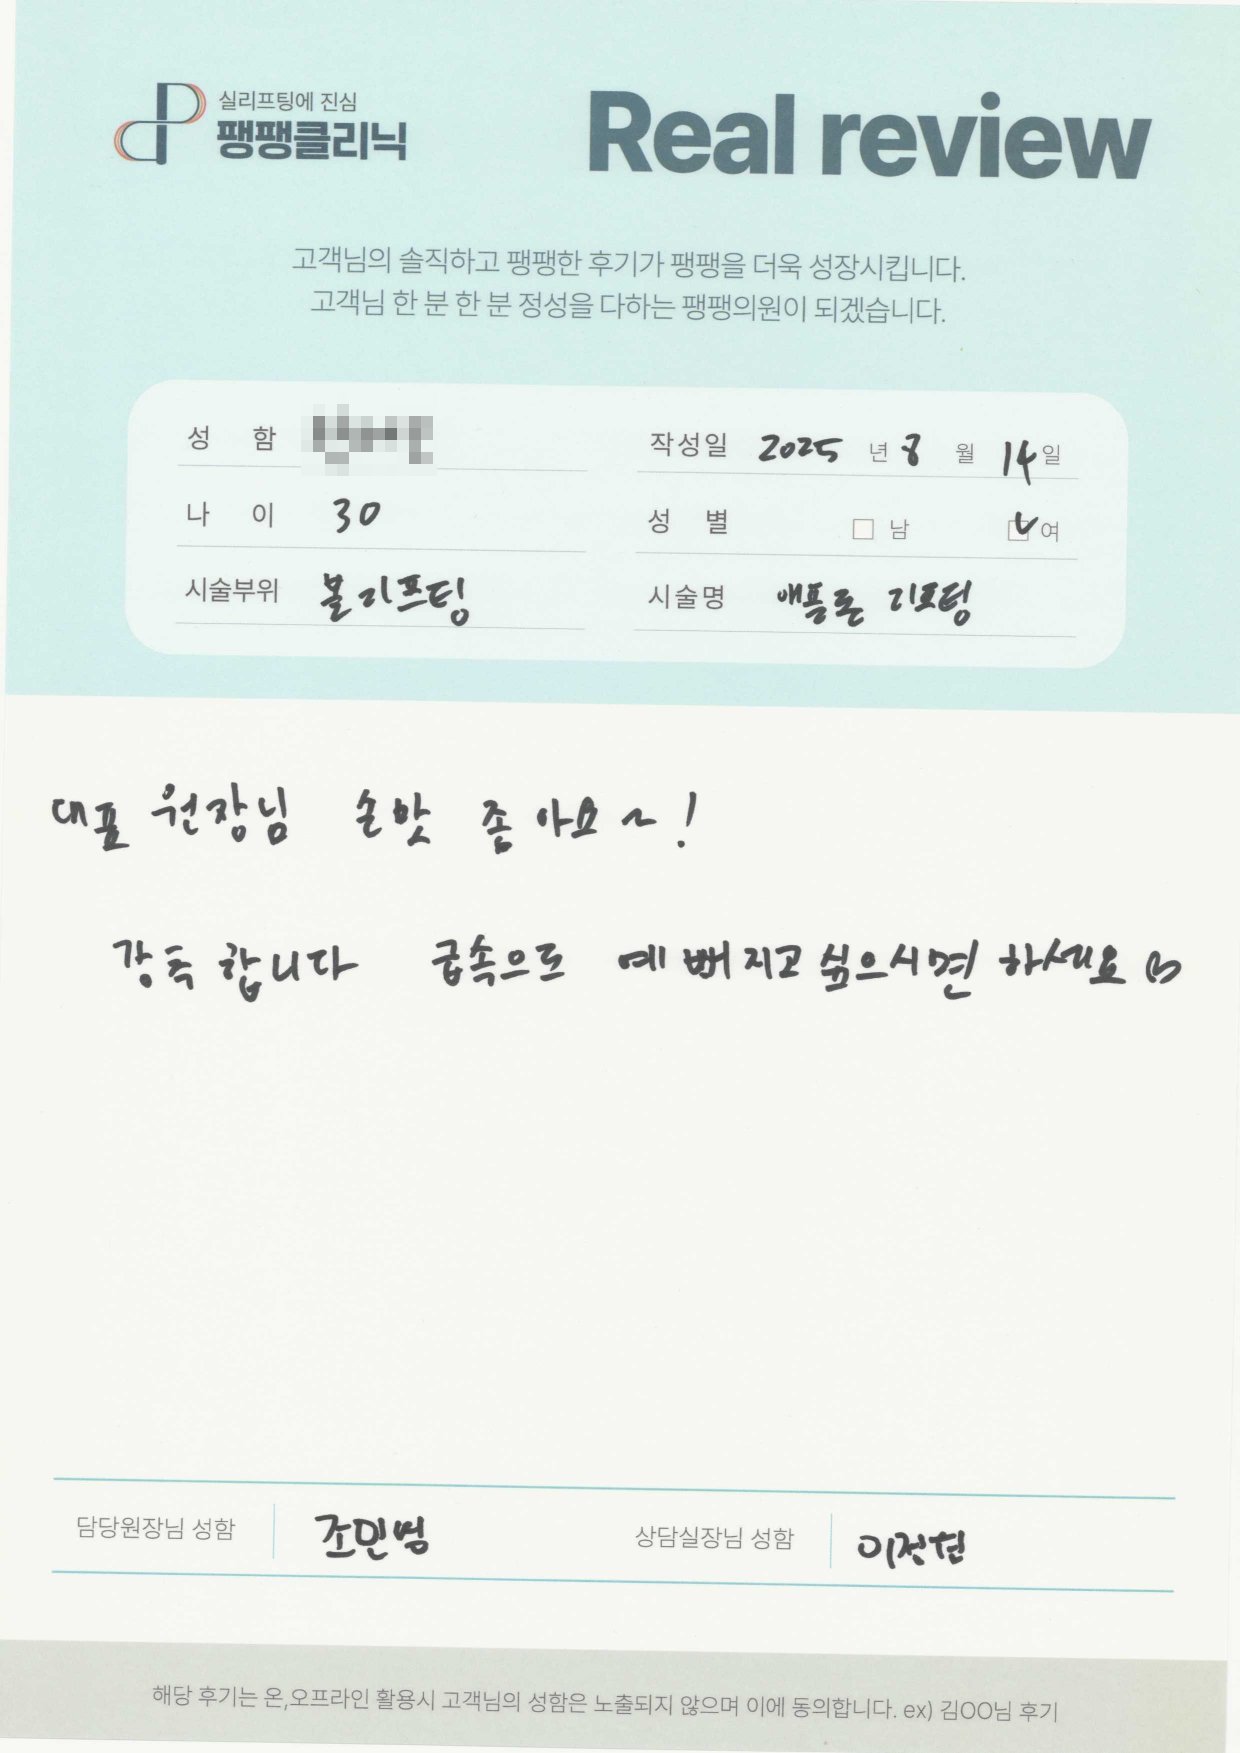 실리프팅에 진심
팽팽클리닉
Real review
고객님의 솔직하고 팽팽한 후기가 팽팽을 더욱 성장시킵니다.
고객님 한 분 한 분 정성을 다하는 팽팽의원이 되겠습니다.
성 함 작성일 2025 년 8 월 14 일
나 이 30 성 별 남 여
시술부위 볼리프팅 시술명 애플톤 리프팅
대표 원장님 손맛 좋아요~!
강추합니다 급속으로 예뻐지고싶으시면 하세요
담당원장님 성함 조민범 상담실장님 성함
해당 후기는 온,오프라인 활용시 고객님의 성함은 노출되지 않으며 이에 동의합니다. ex) 김OO님 후기